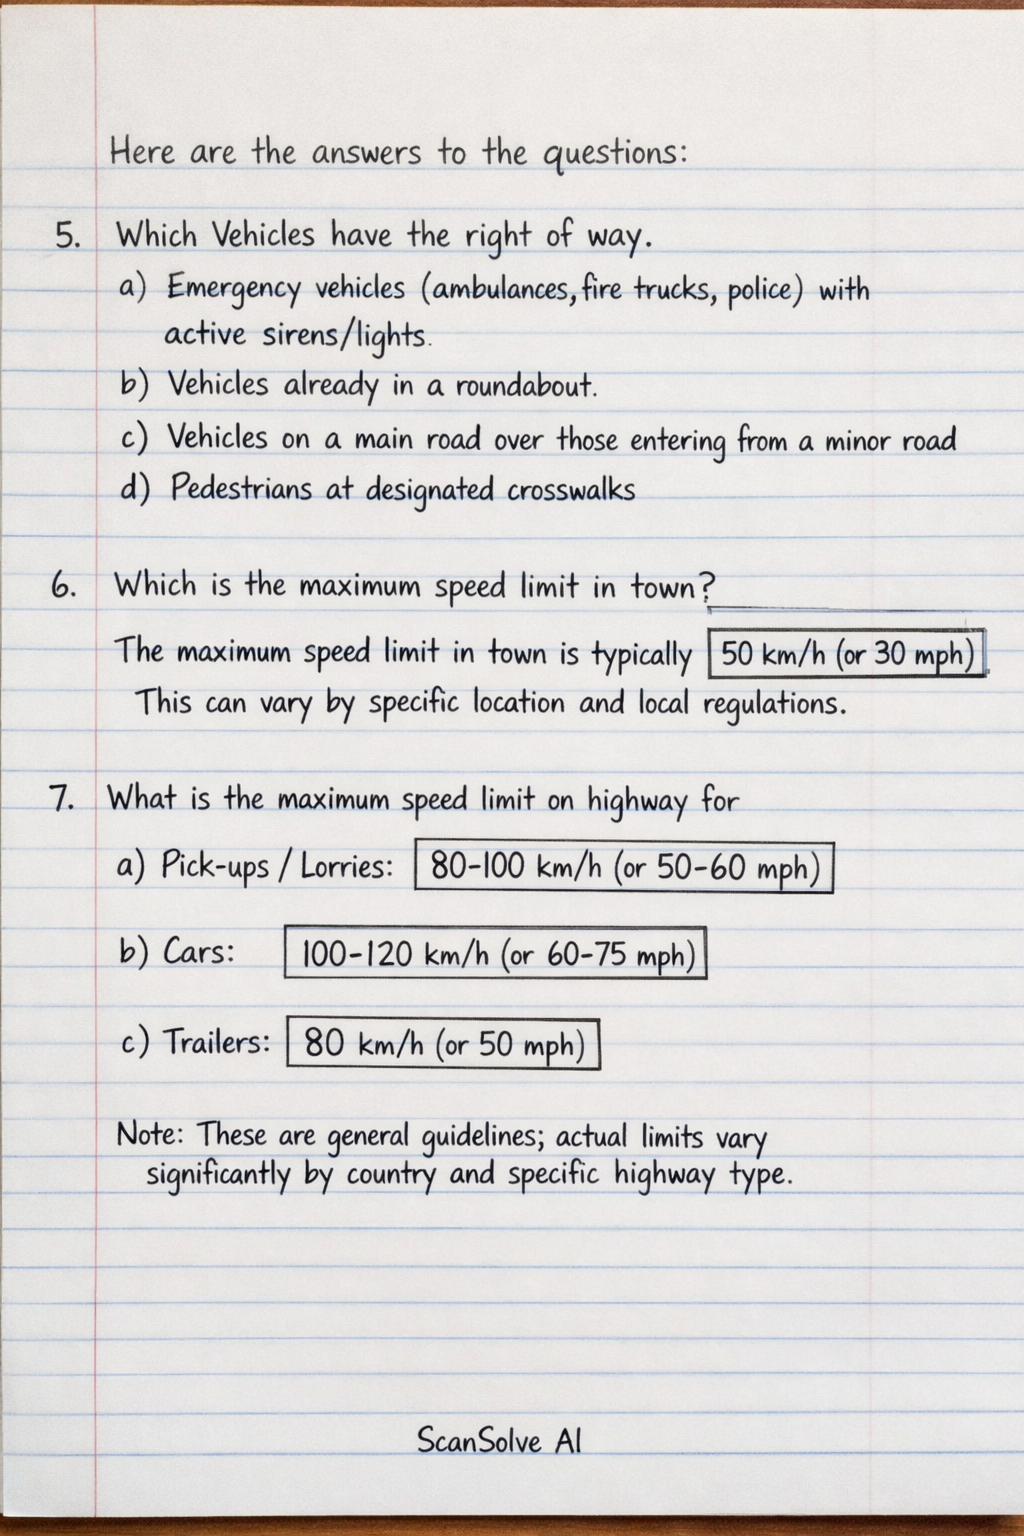 Here are the answers to the questions:
5. Which Vehicles have the right of way.
a) Emergency vehicles (ambulances, fire trucks, police) with
active sirens/lights.
b) Vehicles already in a roundabout.
c) Vehicles on a main road over those entering from a minor road
d) Pedestrians at designated crosswalks
6. Which is the maximum speed limit in town?
The maximum speed limit in town is typically 50 km/h (or 30 mph)
This can vary by specific location and local regulations.
7. What is the maximum speed limit on highway for
a) Pick-ups / Lorries: 80-100 km/h (or 50-60 mph)
b) Cars: 100-120 km/h (or 60-75 mph)
c) Trailers: 80 km/h (or 50 mph)
Note: These are general guidelines; actual limits vary
significantly by country and specific highway type.
ScanSolve AI